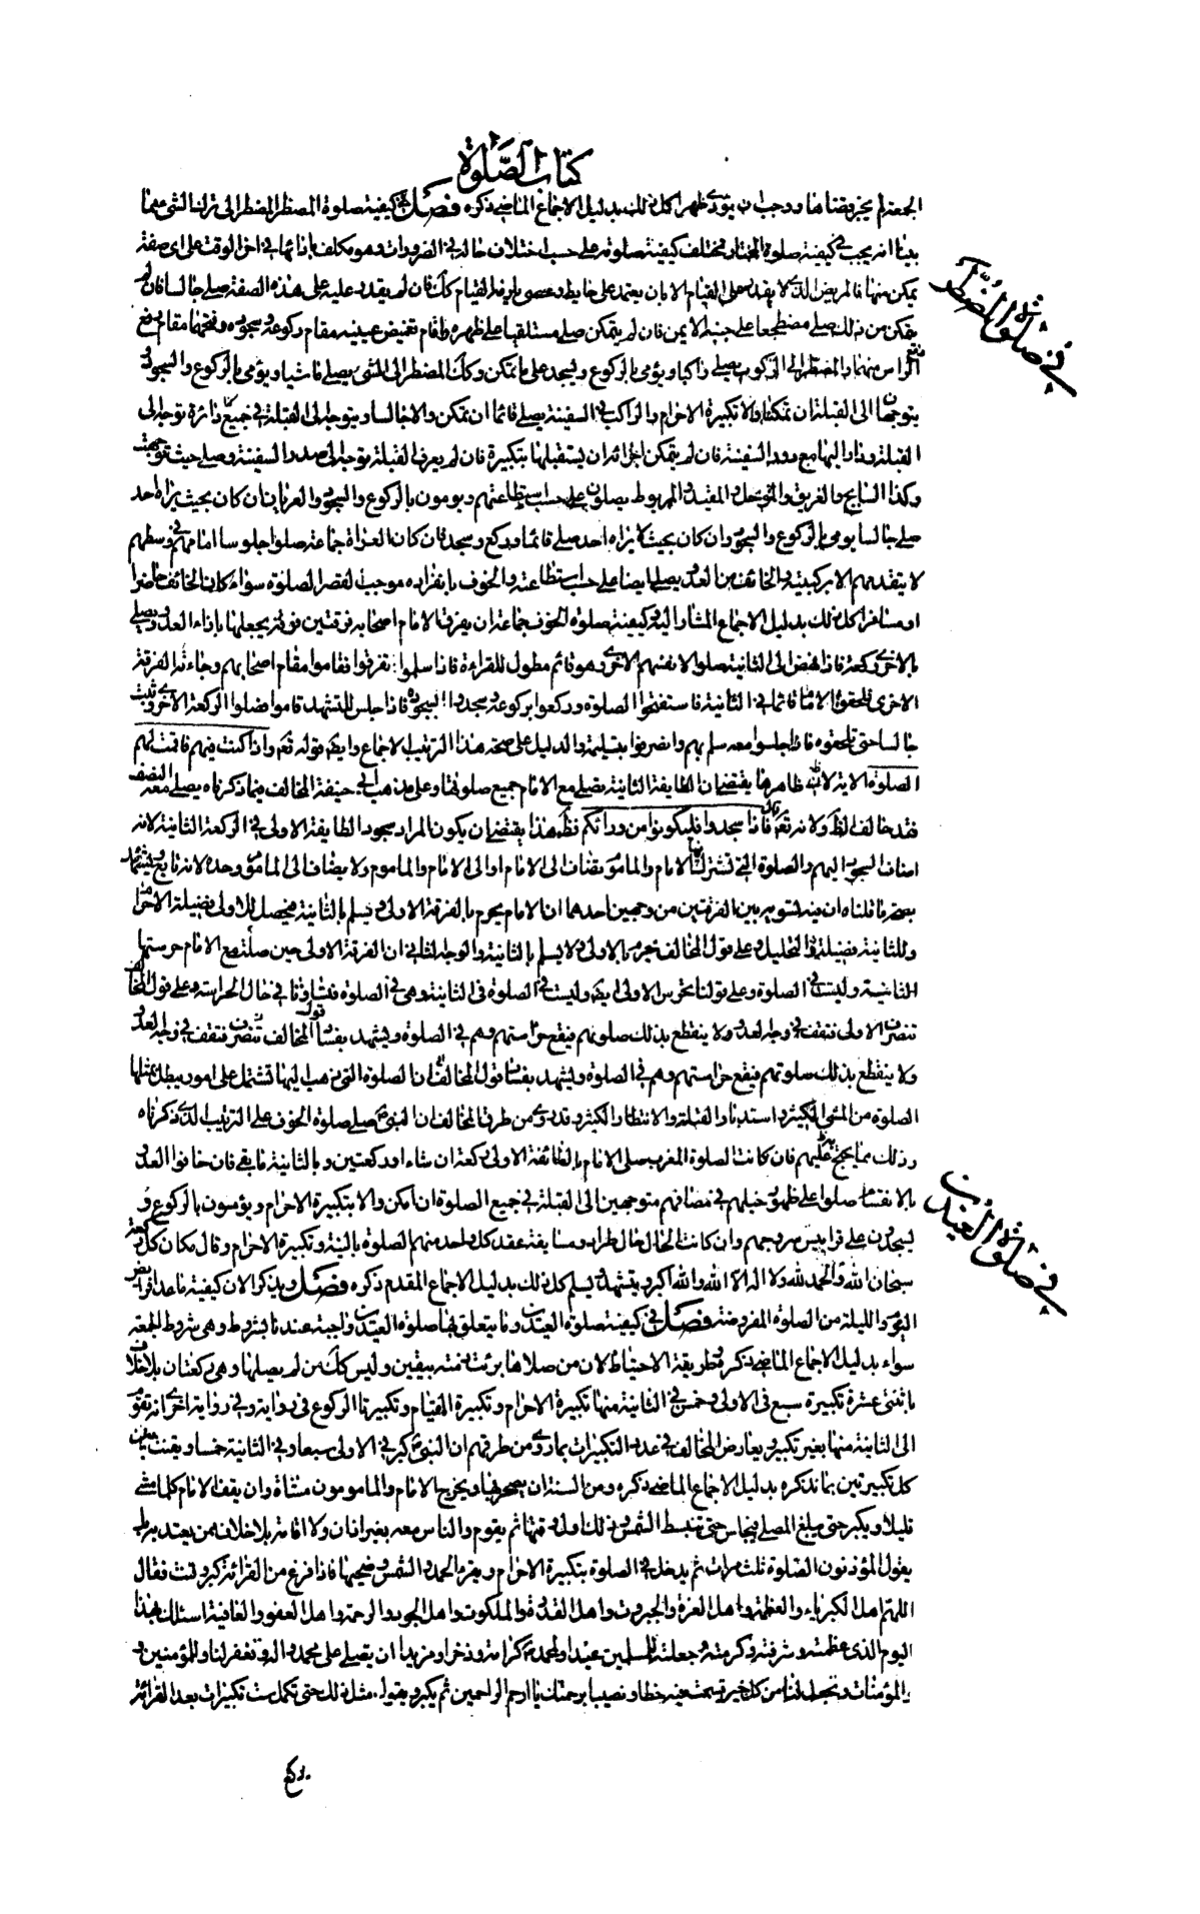 كتاب الصلوة
الجمعة لم يجز قضاؤها ووجب ان يؤدى ظهرا كل ذلك بدليل الاجماع الماضى ذكره فصل فى كيفية صلوة المضطر المضطر الى
بينا انه يجب فى كيفية صلوة المختار تختلف كيفية صلوته على حسب اختلاف حاله فى الضرورات وهو مكلف بادائها فى اخر الوقت على اى صفة
يمكن منها فالمريض الذى لا يقدر على القيام الا بان يعتمد على حايط وعصى يلزمه القيام كك فان لم يقدر عليه على هذه الصفة صلى جالسا فان لم
يتمكن من ذلك صلى مضطجعا على جنبه الايمن فان لم يتمكن صلى مستلقيا على ظهره واقام تغميض عينيه مقام ركوعه وسجوده وفتحهما مقام رفع
الراس منهما والمضطر الى الركوب يصلى راكبا ويؤمى بالركوع ويسجد على ما يتمكن وكك المضطر الى المشى يصلى ماشيا ويؤمى بالركوع والسجود
يتوجهان الى القبلة ان تمكنا والا تكبيرة الاحرام والراكب فى السفينة يصلى قائما ان تمكن والا جالسا ويتوجه الى القبلة فى جميع
القبلة ودار اليها مع دور السفينة فان لم يتمكن اجزائه ان يستقبلها بتكبيرة فان لم يعرف القبلة توجه الى صدر السفينة وصلى حيث توجهت
وكذا السابح والغريق والمتوحل والمقيد والمربوط يصلون على حسب استطاعتهم ويومون بالركوع والسجود والعريان ان كان بحيث يراه احد
صلى جالسا يومى بالركوع والسجود وان كان بحيث لا يراه احد صلى قائما وركع وسجد فان كان العراة جماعة صلوا جلوسا امامهم فى وسطهم
لا يتقدمهم الا بركبتيه والخائف من العدو يصلى ايضا على حسب استطاعته والخوف بانفراده موجب لقصر الصلوة سواء كان الخائف حاضرا
او مسافرا كل ذلك بدليل الاجماع المشار اليه وكيفية صلوة الخوف جماعة ان يفرق الامام اصحابه فرقتين فرقة يجعلها بازاء العدو ويصلى
بالاخرى ركعة فاذا نهض الى الثانية صلوا لانفسهم الاخرى وهو قائم مطول للقراءة فاذا سلموا انفرقوا فقاموا مقام اصحابهم وجاءته الفرقة
الاخرى فلحقوه الامام قائما فى الثانية فاستفتحوا الصلوة وركعوا بركوعه وسجدوا بسجوده فاذا جلس للتشهد قاموا فصلوا الركعة الاخرى وثبت
جالسا حتى تلحقوه فاذا جلسوا معه سلم بهم وانصرفوا بتسليمه والدليل على صحة هذا الترتيب الاجماع وايضا قوله تعه واذا كنت فيهم فاقمت لهم
الصلوة الاية لان ظاهرها يقتضى ان الطايفة الثانية تصلى مع الامام جميع صلوتها وعلى مذهب ابى حنيفة المخالف فيما ذكرناه يصلى معه النصف
فقد خالف الظ ولانه تعه قال فاذا سجدوا فليكونوا من ورائكم فظ هذا يقتضى ان يكون المراد سجود الطايفة الاولى فى الركعة الثانية لانه
اضاف السجود اليهم والصلوة التى تشترك فيها الامام والماموم تضاف الى الامام او الى الامام والماموم ولا يضاف الى الماموم وحده لانه تابع ويشهد
بصحة ما قلناه ان فيه تسوية بين الفرقتين من وجهين احدهما ان الامام يحرم بالفرقة الاولى ويسلم بالثانية فيحصل للاولى فضيلة الاحرام
وللثانية فضيلة التحليل وعلى قول المخالف يحرم بالاولى ولا يسلم بالثانية والوجه الثانى ان الفرقة الاولى حين صلت مع الامام حرستها
الثانية وليست فى الصلوة وعلى قولنا تحرس الاولى ايضا وليست فى الصلوة فى الثانية وهى فى الصلوة فتساوتا فى حال الحراسة وعلى قول المخالف
تنصرف الاولى فتقف فى وجه العدو ولا ينقطع بذلك صلوتهم فيقع حراستهم وهم فى الصلوة ويشهد بفساد قول المخالف تنصرف فتقف فى وجه العدو
ولا ينقطع بذلك صلوتهم فيقع حراستهم وهم فى الصلوة ويشهد بفساد قول المخالف ان الصلوة التى يذهب اليها تشتمل على امور يبطل بمثلها
الصلوة من المشى الكثير واستدبار القبلة والانتظار الكثير وقد روى من طرق المخالف ان النبى صلى صلوة الخوف على الترتيب الذى ذكرناه
وذلك مما يحتج به عليهم فان كانت الصلوة المغرب صلى الامام بالطائفة الاولى ركعة ان شاء او ركعتين وبالثانية ما بقى فان خافوا العدو
بالانقسام صلوا على ظهور خيلهم فى مصافهم متوجهين الى القبلة فى جميع الصلوة ان امكن والا بتكبيرة الاحرام ويؤمون بالركوع و
يسجدون على قرابيس سروجهم وان كانت الحال حال طراد ومسايفة عقد كل واحد منهم الصلوة بالنية وتكبيرة الاحرام وقال مكان كل ركعة
سبحان الله والحمد لله ولا اله الا الله والله اكبر ويتشهد ويسلم كل ذلك بدليل الاجماع المقدم ذكره فصل ويذكر الان كيفية ما عدا فرائض
اليوم والليلة من الصلوة المفروضة فصل فى كيفية صلوة العيدين وما يتعلق بها صلوة العيدين واجبة عندنا بشروط وهى شروط الجمعة
سواء بدليل الاجماع الماضى ذكره وطريقة الاحتياط لان من صلاها برئت ذمته بيقين وليس كك من لم يصلها وهى ركعتان بلا خلاف
باثنتى عشرة تكبيرة سبع فى الاولى وخمس فى الثانية منها تكبيرة الاحرام وتكبيرة القيام وتكبيرتا الركوع فى رواية وفى رواية اخرى انه يقوم
الى الثانية منها بغير تكبير ويعارض المخالف فى عدد التكبيرات بما روى من طرقهم ان النبى كبر فى الاولى سبعا وفى الثانية خمسا ويقنت بين
كل تكبيرتين بما نذكره بدليل الاجماع الماضى ذكره ومن السنة ان يصحر بها ويخرج الامام والمامومون مشاة وان يقف الامام كلما مشى
قليلا ويكبر حتى يبلغ المصلى فيجلس حتى تنبسط الشمس وذلك اول وقتها ثم يقوم والناس معه بغير اذان ولا اقامة بلا خلاف ممن يعتد به بل
يقول المؤذنون الصلوة ثلث مرات ثم يدخل فى الصلوة بتكبيرة الاحرام ويقرء الحمد والشمس وضحيها فاذا فرغ من القرائة كبر وقنت فقال
اللهم اهل الكبرياء والعظمة واهل العزة والجبروت واهل القدرة والملكوت واهل الجود والرحمة واهل العفو والعافية اسئلك بهذا
اليوم الذى عظمته وشرفته وكرمته وجعلته للمسلمين عيدا ولمحمد كرامة وذخرا ومزيدا ان يصلى على محمد واله وتغفر لنا وللمؤمنين و
المؤمنات وتجعل لنا من كل خير قسمت فيه حظا ونصيبا برحمتك يا ارحم الراحمين ثم يكبر ويقول مثل ذلك حتى تكمل ست تكبيرات بعد القرائة
فى صلوة المضطر
فى صلوة العيدين
يركع